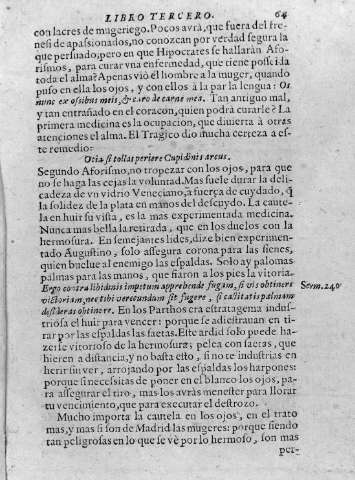 LIBRO TERCERO. 64
con lacres de mugeriego. Pocos avrà, que fuera del fre-
nesi de apassionados, no conozcan por verdad segura la
que persuado, pero en que Hipocrates se hallaràn Afo-
rismos, para curar vna enfermedad, que tiene posseida
toda el alma? Apenas viò el hombre a la muger, quando
puso en ella los ojos, y con ellos à la par la lengua: Os
nunc ex ossibus meis, & caro de carne mea. Tan antiguo mal,
y tan entrañado en el coraçon, quien podrà curarle? La
primera medicina es la ocupacion, que divierta à otras
atenciones el alma. El Tragico dio mucha certeza a es-
te remedio:
Otia si tollas periere Cupidinis arcus.
Segundo Aforismo, no tropezar con los ojos, para que
no se haga las cejas la voluntad. Mas suele durar la deli-
cadeza de vn vidro Veneciano, a fuerça de cuydado, q̃
la solidez de la plata en manos del descuydo. La caute-
la en huir su vista, es la mas experimentada medicina.
Nunca mas bella la retirada, que en los duelos con la
hermosura. En semejantes lides, dize bien experimen-
tado Augustino, solo assegura corona para las sienes,
quien buelue al enemigo las espaldas. Solo ay palomas
palmas para las manos, que fiaron a los pies la vitoria.
Ergo contra libidinis impetum apprehende fugam, si vis obtinere
victoriam, nec tibi verecundum sit fugere, si castitatis palmam
desideras obtinere. En los Parthos era estratagema indus-
triosa el huir para vencer: porque se adiestrauan en ti-
rar por las espaldas las saetas. Este ardid solo puede ha-
zerse vitorioso de la hermosura; pelea con saetas, que
hieren a distancia, y no basta esto, si no te industrias en
herir sin ver, arrojando por las espaldas los harpones:
porque si necessitas de poner en el blanco los ojos, pa-
ra assegurar el tiro, mas los avràs menester para llorar
tu vencimiento, que para executar el destrozo.
Mucho importa la cautela en los ojos, en el trato
mas, y mas si son de Madrid las mugeres: porque siendo
tan peligrosas en lo que se vè por lo hermoso, son mas
per-
Serm. 240